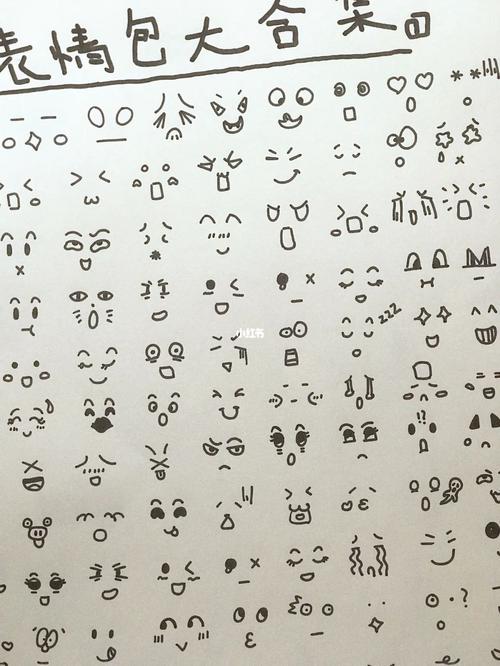 表情包大合集①
zzz
小红书
!?
?